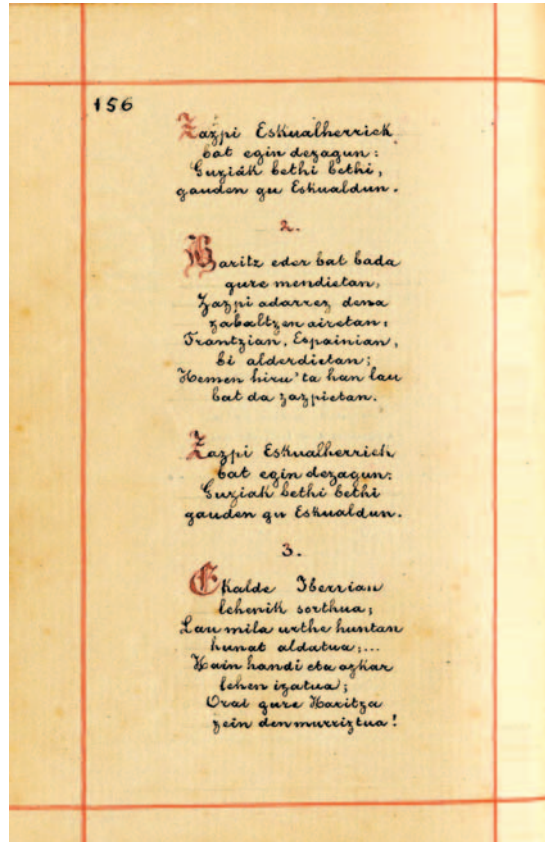 156
Zazpi Eskualherriek
bat egin dezagun:
Guziak bethi bethi,
gauden gu Eskualdun.
2.
Haritz eder bat bada
gure mendietan,
Zazpi adarrez dena
zabaltzen airetan:
Frantzian, Espainian,
bi alderdietan;
Hemen hiru'ta han lau
bat da zazpietan.
Zazpi Eskualherriek
bat egin dezagun:
Guziak bethi bethi
gauden gu Eskualdun.
3.
Ekalde Iberrian
lehenik sorthua;
Lau mila urthe huntan
hunat aldatua;...
Hain handi eta azkar
lehen izatua;
Orai gure Haritza
zein den murriztua!